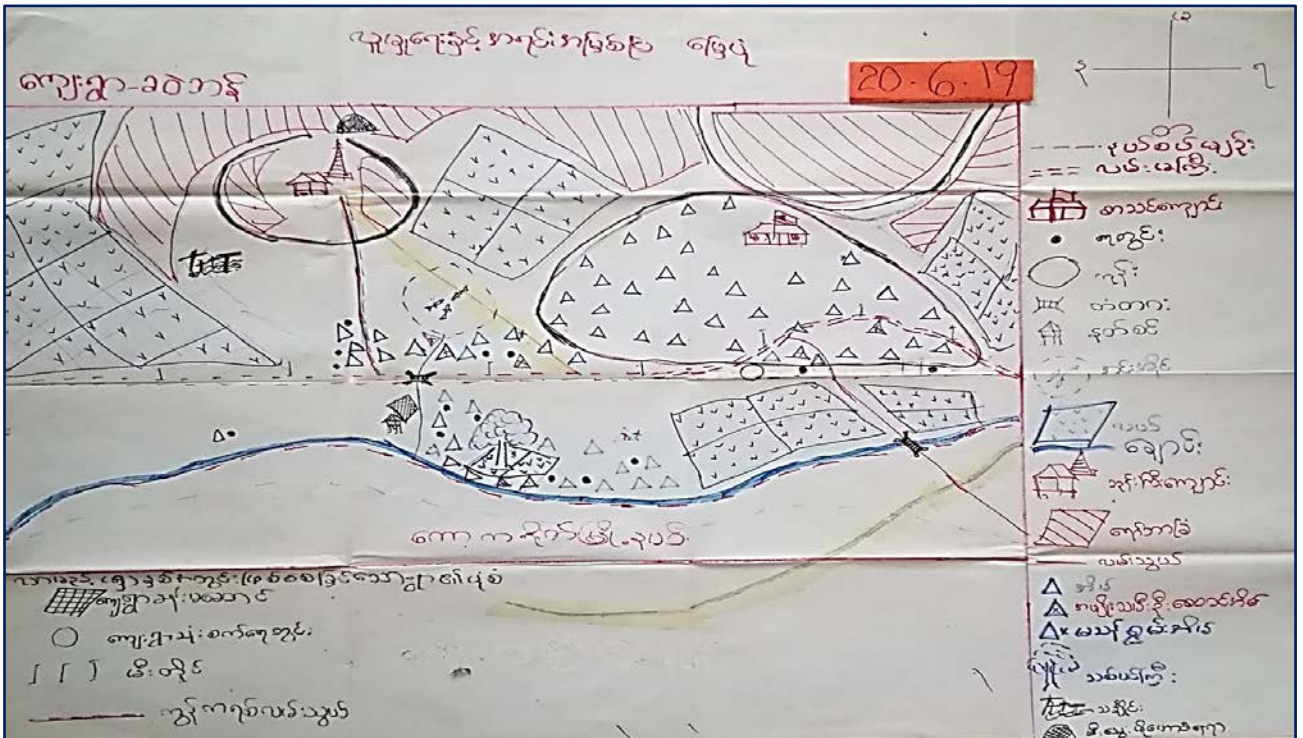 လူမှုရေးနှင့် အရင်းအမြစ်ပြ မြေပုံ
ကျေးရွာ-ခဝဲဘန်
20-6-19
နယ်စပ်မျဉ်း
လမ်းမကြီး
စာသင်ကျောင်း
ရေတွင်း
ကုန်း
တံတား
နတ်စင်
လယ်
ချောင်း
ဘုန်းကြီးကျောင်း
ရော်ဘာခြံ
လမ်းသွယ်
အိမ်
အမျိုးသမီးဦးဆောင်အိမ်
မသန်စွမ်းအိမ်
သစ်ပင်ကြီး
ကော့ကရိတ်မြို့နယ်
ကျေးရွာခန်းမဆောင်
ကျေးရွာသုံးစက်ရေတွင်း
မီးတိုင်
ကွန်ကရစ်လမ်းသွယ်